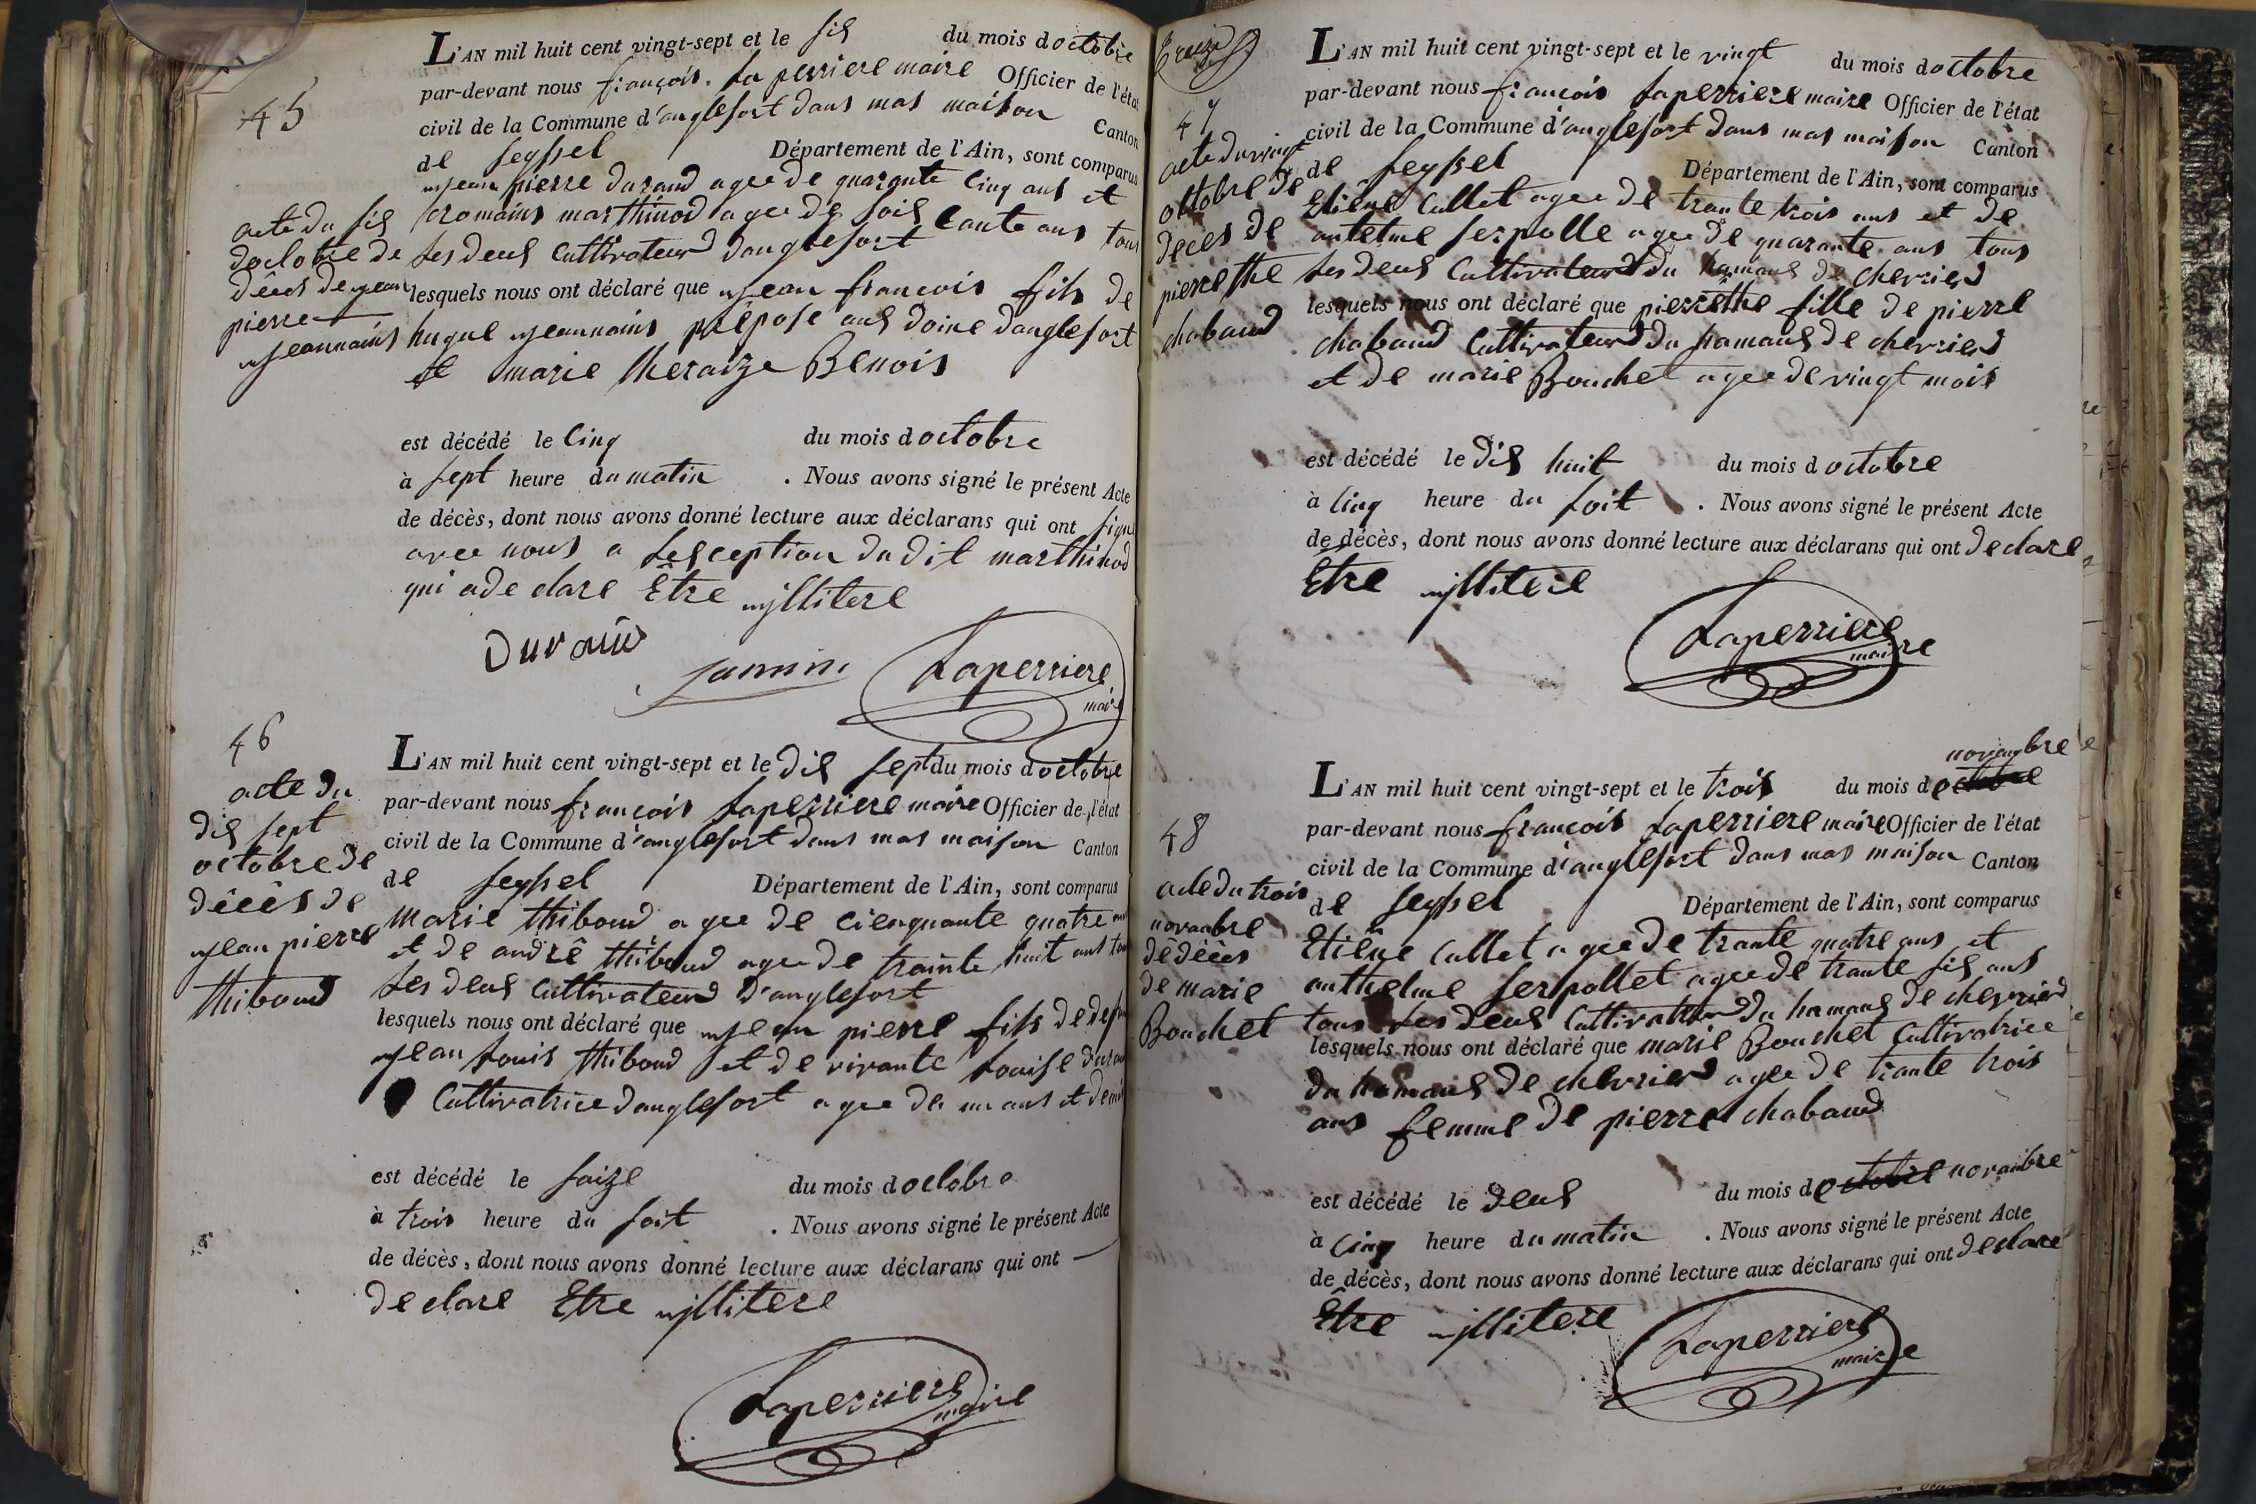 45
acte du six
doctobre de
dêcês de jean
pierre
jeannains
L'AN mil huit cent vingt-sept et le six du mois doctobre
par-devant nous françois laperriere maire Officier de l'état
civil de la Commune d'anglefort dans mas maison Canton
de seyssel Département de l'Ain, sont comparus
jean pierre durand agee de quarante cinq ans et
romains marthinod agee de soiscante ans tous
les deus Cultivateurs danglefort
lesquels nous ont déclaré que jean francois fils de
hugue jeannains prepose aus doine danglefort
et marie theraize Benois
est décédé le Cinq du mois doctobre
à sept heure du matin . Nous avons signé le présent Acte
de décès, dont nous avons donné lecture aux déclarans qui ont signé
avec nous a lesception du dit marthinod
qui a de clare Être illitere
Durand
janin
Laperriere
maire
46
acte du
dix sept
octobre de
dêcês de
jean pierre
thiboud
L'AN mil huit cent vingt-sept et le dix sept du mois doctobre
par-devant nous françois Laperriere maire Officier de l'état
civil de la Commune d'anglefort dans mas maison Canton
de seyssel Département de l'Ain, sont comparus
marie thiboud agee de cienquante quatre ans
et de andrê thiboud agee de trainte huit ans tous
les deus Cultivateurs d'anglefort
lesquels nous ont déclaré que jean pierre fils de
jean Louis thiboud et de vivante Louise
Cultivatrice danglefort agee de un ans et demi
est décédé le saize du mois doctobre
à trois heure du soit . Nous avons signé le présent Acte
de décès, dont nous avons donné lecture aux déclarans qui ont
de clare Etre illitere
Laperriere
maire
47
acte du vingt
octobre de
deces de
pierrethe
chabaud
L'AN mil huit cent vingt-sept et le vingt du mois doctobre
par-devant nous françois laperriere maire Officier de l'état
civil de la Commune d'anglefort dans mas maison Canton
de seyssel Département de l'Ain, sont comparus
Etiene Cullet agee de trante trois ans et de
antelme serpolle agee de quarante ans tous
les deus Cultivateurs du hamaus de cheviers
lesquels nous ont déclaré que pierrethe fille de pierre
chabaud Cultivateurs du hamaus de cheviers
et de marie Bouchet agee de vingt mois
est décédé le dix huit du mois doctobre
à Cinq heure du soit . Nous avons signé le présent Acte
de décès, dont nous avons donné lecture aux déclarans qui ont declare
Etre illitere
Laperriere
maire
48
acte du trois
novambre
dêdêcês
de marie
Bouchet
novambre
L'AN mil huit cent vingt-sept et le trois du mois doctobre
par-devant nous françois Laperriere maire Officier de l'état
civil de la Commune d'anglefort dans mas maison Canton
de seyssel Département de l'Ain, sont comparus
Etiêne Cullet agee de trante quatre ans et
anthelme serpollet agee de trante six ans
tous les deus Cultivateurs du hamaus de cheviers
lesquels nous ont déclaré que marie Bouchet Cultivatrice
du hamaus de cheviers agee de trante trois
ans femme de pierre chabaud
est décédé le deus du mois doctobre novambre
à Cinq heure du matin . Nous avons signé le présent Acte
de décès, dont nous avons donné lecture aux déclarans qui ont declare
Être illitere
Laperriere
maire